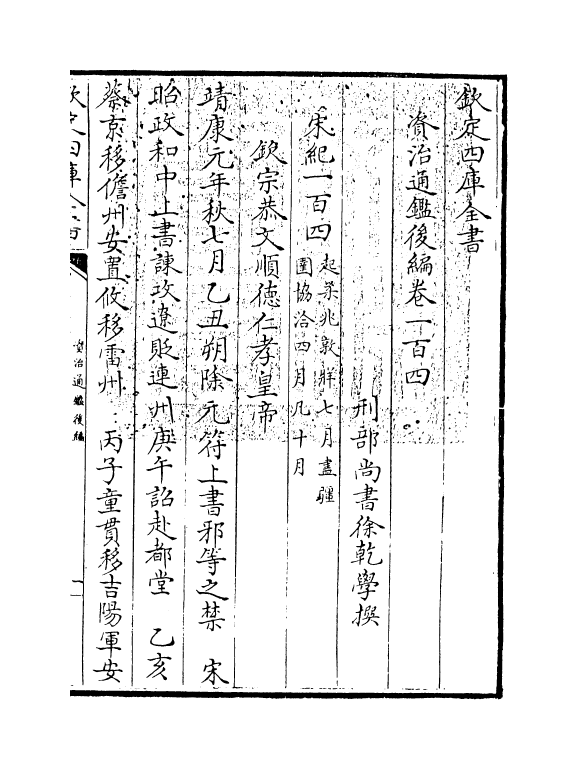 欽定四庫全書
資治通鑑後編卷一百四
刑部尚書徐乾學撰
宋紀一百四 起柔兆敦牂七月盡彊
圉協洽四月凡十月
欽宗恭文順德仁孝皇帝
靖康元年秋七月乙丑朔除元符上書邪等之禁 宋
昭政和中上書諫攻遼貶連州庚午詔赴都堂 乙亥
蔡京移儋州安置攸移雷州 丙子童貫移吉陽軍安
資治通鑑後編
一